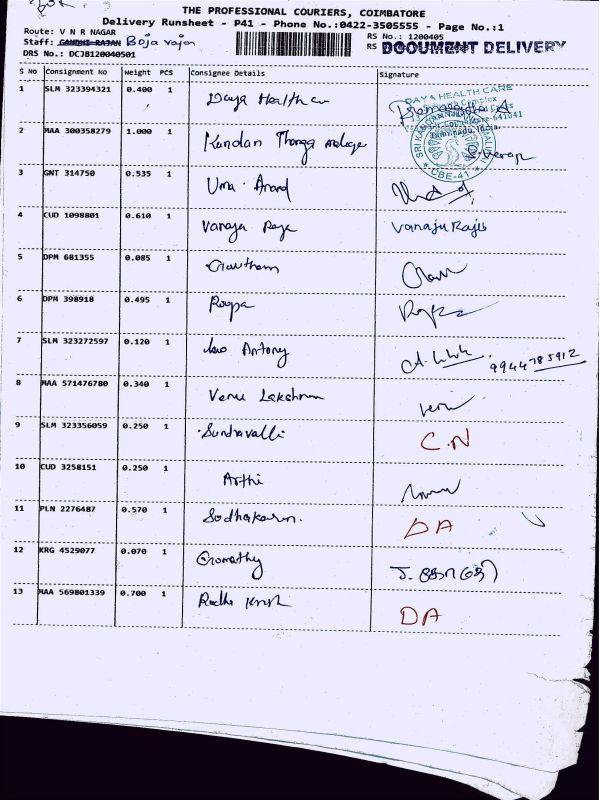 THE PROFESSIONAL COURIERS, COIMBATORE
Delivery Runsheet - P41 - Phone No.:0422-3505555 - Page No.:1
Route: V N R NAGAR
RS No.: 1200405
Staff: GANDHI RAJAN Boja rajan
RS
DOCUMENT DELIVERY
DRS No.: DCJB120040501
S No Consignment No Weight PCS Consignee Details Signature
1 SLM 323394321 0.400 1 Daya Health care
DAYA HEALTH CARE
2 MAA 300358279 1.000 1 Kundan Thanga maligai
641041
Tamilnadu, India.
CBE-41
3 GNT 314750 0.535 1 Uma Anand
4 CUD 1098801 0.610 1 Vanaja Raja Vanaju Rajis
5 DPM 681355 0.085 1 Gowtham
6 DPM 398918 0.495 1 Roopa
7 SLM 323272597 0.120 1 Antony 9944785912
8 MAA 571476780 0.340 1 Venu Lakshmm
9 SLM 323356059 0.250 1 Sundravalli C.N
10 CUD 3258151 0.250 1 Arthi
11 PLN 2276487 0.570 1 Sudhakaran DA
12 KRG 4529077 0.070 1 Gomathy J.
13 MAA 569801339 0.700 1 Radha Krish DA